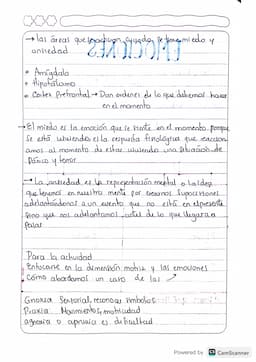 → las áreas que reaccionan cuando se tiene miedo y
ansiedad
EMOCIONES
• Amígdala
• Hipotálamo
• Cortex Prefrontal → Dan ordenes de lo que debemos hacer
en el momento
→ El miedo es la emoción que se siente en el momento porque
se está viviendo es la respuesta fisiológica que reaccion
amos al momento de estar viviendo una situación de
pánico y terror
→ La ansiedad es la representación mental o la idea
que tenemos en nuestra mente por crearnos suposiciones
adelantándonos a un evento que no está en el presente
sino que nos adelantamos antes de lo que llegara a
pasar
Para la actividad
Enfocarse en la dimensión motriz y las emociones
Cómo abordamos un caso de las
Gnosia Sensorial, reconocer símbolos
Praxia Movimientos, motricidad
agnosia o apraxia es dificultad
Powered by CS CamScanner